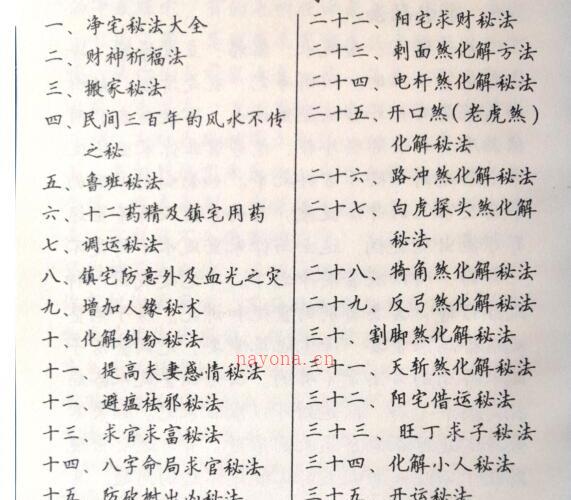 一、净宅秘法大全
二、财神祈福法
三、搬家秘法
四、民间三百年的风水不传
之秘
五、鲁班秘法
六、十二药精及镇宅用药
七、调运秘法
八、镇宅防意外及血光之灾
九、增加人缘秘术
十、化解纠纷秘法
十一、提高夫妻感情秘法
十二、避瘟祛邪秘法
十三、求官求富秘法
十四、八字命局求官秘法
十五、防砍树出凶秘法
二十二、阳宅求财秘法
二十三、刺面煞化解方法
二十四、电杆煞化解秘法
二十五、开口煞(老虎煞)
化解秘法
二十六、路冲煞化解秘法
二十七、白虎探头煞化解
秘法
二十八、犄角煞化解秘法
二十九、反弓煞化解秘法
三十、割脚煞化解秘法
三十一、天斩煞化解秘法
三十二、阳宅借运秘法
三十三、旺丁求子秘法
三十四、化解小人秘法
三十五、开运秘法
nayona.cn